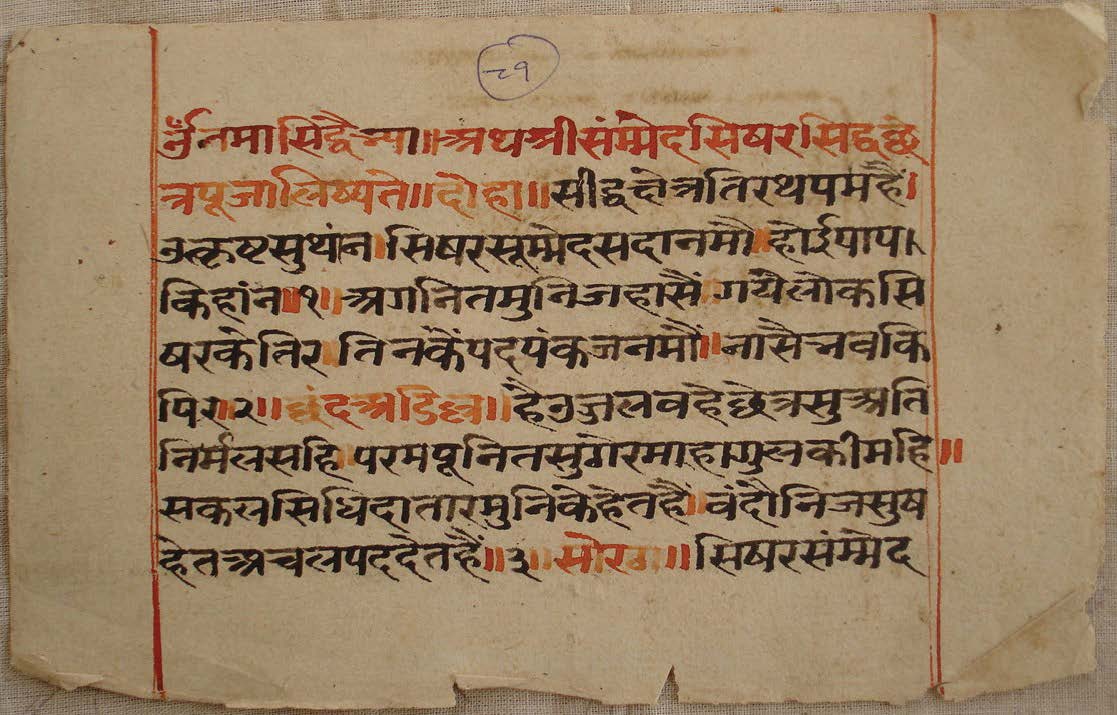 ८१
ॐनमःसिद्धैभ्या॥अथश्रीसंम्मेदसिषरसिद्धछे
त्रपूजालिष्यते॥दोहा॥सीद्धछेत्रतिरथपर्महै।
उत्कृष्टसुथांन।सिषरसूम्मेदसदानमौ।होईपापा
किहांन॥१॥अगनितमुनिजहासैं।गयैलोकसि
षरकेतिर।तिनकैंपदपंकजनमौं॥नासैभवकि
पिर॥२॥छंदअडिल्ल॥हैउजलवहेछेत्रसुअति
निर्मलसहि।परमपूनितसुगेरमाहागुलकीमहि॥
सकलसिधिदातारमुनिकेहेतहैं॥वंदौनिजसुष
हेतअचलपददेतहैं॥३॥सोरठा॥सिषरसंम्मेद